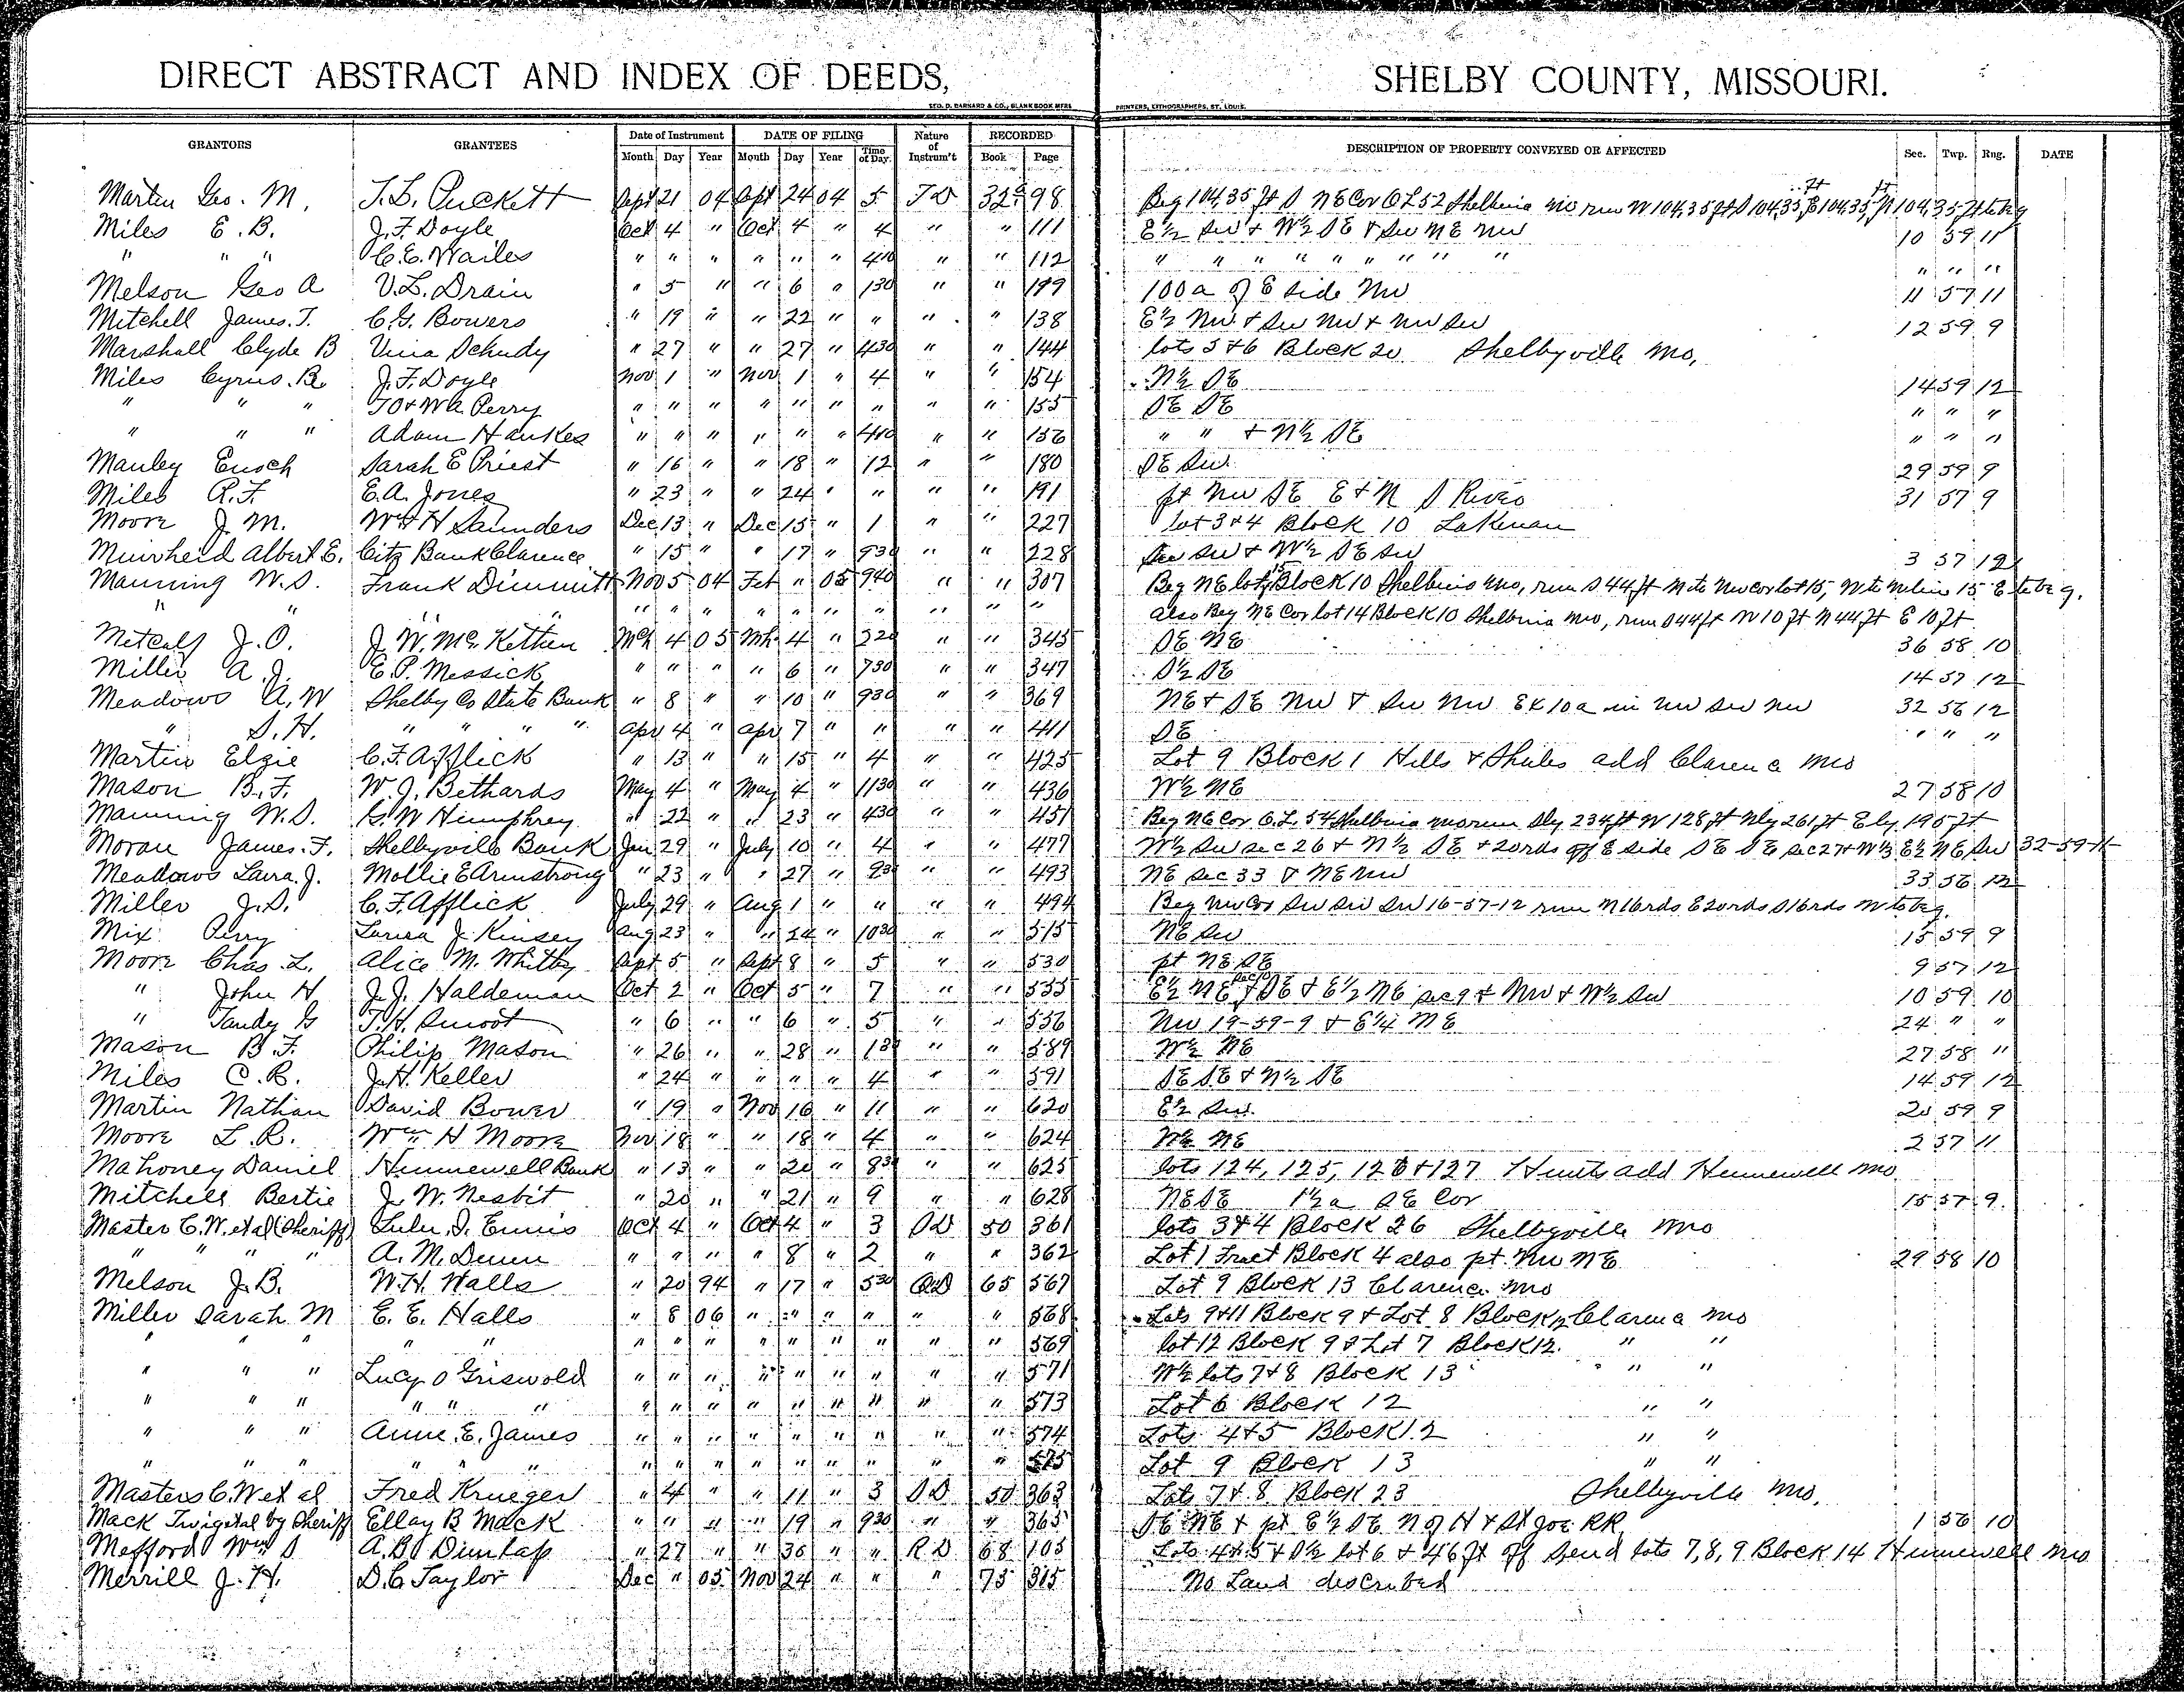 DIRECT ABSTRACT AND INDEX OF DEEDS, SHELBY COUNTY, MISSOURI.
GEO. D. BARNARD & CO., BLANK BOOK MFRS PRINTERS, LITHOGRAPHERS, ST. LOUIS.
GRANTORS GRANTEES Date of Instrument DATE OF FILING Nature of Instrum't RECORDED DESCRIPTION OF PROPERTY CONVEYED OR AFFECTED Sec. Twp. Rng. DATE
Month Day Year Month Day Year Time of Day. Book Page
Martin Geo. M. T. L. Puckett Sept 21 04 Sept 24 04 5 TD 98 Beg 104,35 ft S NE Cor OL 52 Shelbina Mo run W 104,35 ft S 104,35 ft E 104,35 ft N 104,35 ft to beg
Miles E. B. J. F. Doyle Oct 4 " Oct 4 " 4 " " 111 E½ Sw & W½ SE & Sw NE Nw 10 59 11
" " " C. E. Wailes " " " " " " 410 " " 112 " " " " " " " " " " " "
Melson Geo A V. L. Drain " 5 " " 6 " 130 " " 199 100 a of E side Nw 11 57 11
Mitchell James. T. C. G. Bowers " 19 " " 22 " " " " 138 E½ Nw & Sw Nw & Nw Sw 12 59 9
Marshall Clyde B Vina Schudy " 27 " " 27 " 430 " " 144 lots 5 & 6 Block 20 Shelbyville Mo,
Miles Cyrus. B. J. F. Doyle Nov 1 " Nov 1 " 4 " " 154 N½ SE 14 59 12
" " " TO & WA Perry " " " " " " " " " 155 SE SE " " "
" " " Adam Hawkes " " " " " " 410 " " 156 " " & N½ SE " " "
Manley Enoch Sarah E Priest " 16 " " 18 " 12 " " 180 SE Sw. 29 59 9
Miles R. F. E. A. Jones " 23 " " 24 " " " " 191 pt Nw SE E & N S River 31 57 9
Moore J. M. Wm H Saunders Dec 13 " Dec 15 " 1 " " 227 lot 3 & 4 Block 10 Lakenan
Muirheid Albert E. Citz Bank Clarence " 15 " " 17 " 930 " " 228 Sw Sw & W½ SE Sw 3 57 12
Manning W. S. Frank Dimmitt Nov 5 04 Feb " 05 940 " " 307 Beg NE lot 15 Block 10 Shelbina Mo, run S 44 ft W to Nw cor lot 15, E to beg.
" " " " " " " " " " " " " " also Beg NE Cor lot 14 Block 10 Shelbina Mo, run S 44 ft W 10 ft N 44 ft E 10 ft
Metcalf J. O. J. W. Mc Kethen Mch 4 05 Mh 4 " 320 " " 345 SE NE 36 58 10
Miller A. J. E. P. Messick " " " " 6 " 730 " " 347 S½ SE 14 57 12
Meadows A. W Shelby Co State Bank " 8 " " 10 " 930 " " 369 NE & SE Nw & Sw Nw Ex 10 a in Nw Sw Nw 32 56 12
" S. H. " " " " Apr 4 " Apr 7 " " " " 411 SE " " "
Martin Elzie C. F. Afflick " 13 " " 15 " 4 " " 425 Lot 9 Block 1 Hills & Shules add Clarence Mo
Mason B. F. W. J. Bethards May 4 " May 4 " 1130 " " 436 W½ NE 27 58 10
Manning W. S. G. W Humphrey " 22 " " 23 " 430 " " 451 Beg NE Cor O. L. 54 Shelbina Mo run Sly 234 ft W 128 ft Nly 261 ft Ely 195 ft
Moran James. F. Shelbyville Bank Jan 29 " July 10 " 4 " " 477 W½ Sw sec 26 & N½ SE & 20 rds off E side SE SE sec 27 & W½ E½ NE Sw 32-59-11
Meadows Laura. J. Mollie E Armstrong " 23 " " 27 " 930 " " 493 NE sec 33 & NE Nw 33 56 12
Miller J. S. C. F. Afflick July 29 " Aug 1 " " " " 494 Beg Nw Cor Sw Sw Sw 16-57-12 run N 16 rds E 20 rds S 16 rds W to beg.
Mix Perry J. Kinsey Aug 23 " " 24 " 1030 " " 515 NE Sw 15 59 9
Moore Chas. L. Alice M. Whitby Sept 5 " Sept 8 " 5 " " 530 pt NE SE 9 57 12
" John H J. J. Haldeman Oct 2 " Oct 5 " 7 " " 555 E½ NE sec 10 & SE & E½ NE sec 9 & Nw & W½ Sw 10 59 10
" Tandy G T. H. Smoot " 6 " " 6 " 5 " " 556 Nw 19-59-9 & E¼ NE 24 " "
Mason B. F. Philip Mason " 26 " " 28 " 130 " " 589 W½ NE 27 58 "
Miles C. B. J. H. Keller " 24 " " " " 4 " " 591 SE SE & N½ SE 14 59 12
Martin Nathan David Bower " 19 " Nov 16 " 11 " " 620 E½ Sw. 20 59 9
Moore L. R. Wm H Moore Nov 18 " " 18 " 4 " " 624 W½ NE 2 57 11
Mahoney Daniel Hunnewell Bank " 13 " " 20 " 830 " " 625 lots 124, 125, 126 & 127 Hunts add Hunnewell Mo
Mitchell Bertie J. W. Nesbit " 20 " " 21 " 9 " " 628 NE SE 1½ a SE Cor 15 57 9
Master C. W. et al (Sheriff) Lulu. I. Ennis Oct 4 " Oct 4 " 3 SD 50 361 lots 3 & 4 Block 26 Shelbyville Mo
" " " " A. M. Dunn " " " " 8 " 2 " " 362 Lot 1 Fract Block 4 also pt. Nw NE 29 58 10
Melson J. B. W. H. Walls " 20 94 " 17 " 530 QD 65 567 Lot 9 Block 13 Clarence Mo
Miller Sarah M E. E. Halls " 8 06 " " " " " " 568 Lots 9 & 11 Block 9 & Lot 8 Block 12 Clarence Mo
" " " " " " " " " " " " " " 569 lot 12 Block 9 & Lot 7 Block 12. " "
" " " Lucy O Griswold " " " " " " " " " 571 W½ lots 7 & 8 Block 13 " " "
" " " " " " " " " " " " " " " 573 Lot 6 Block 12 " "
" " " Anne. E. James " " " " " " " " " 574 Lots 4 & 5 Block 12 " "
" " " " " " " " " " " " " " " 575 Lot 9 Block 13 " "
Masters C. W et al Fred Krueger " 4 " " 11 " 3 SD 50 363 Lots 7 & 8 Block 23 Shelbyville Mo,
Mack et al by Sheriff Ellay B Mack " " " " 19 " 930 " " 365 SE NE & pt E½ SE N of H & St Joe RR 1 56 10
Mefford Wm S A. B. Dunlap " 27 " " 30 " " RD 68 105 Lots 4 & 5 & S½ lot 6 & 46 ft off S end lots 7, 8, 9 Block 14 Hunnewell Mo
Merrill J. H. D. C Taylor Dec " 05 Nov 24 " " " 75 315 No Land described